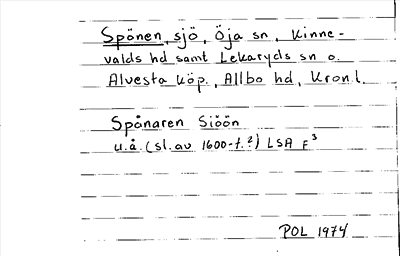 Spånen, sjö, Öja sn, Kinne-
valds hd samt Lekaryds sn o.
Alvesta köp., Allbo hd, Kron.l.
Spånaren Siöön
u.å. (sl. av 1600-t.?) LSA F³
POL 1974